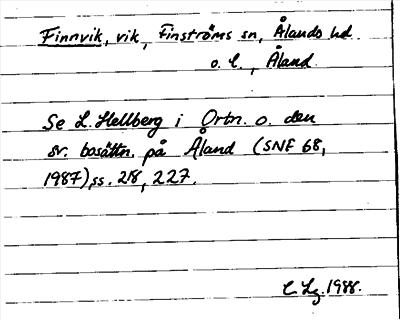 Finnvik, vik, Finströms sn, Ålands hd
o. l., Åland.
Se L. Hellberg i Ortn. o. den
sv. bosättn. på Åland (SNF 68,
1987), ss. 218, 227.
1988.